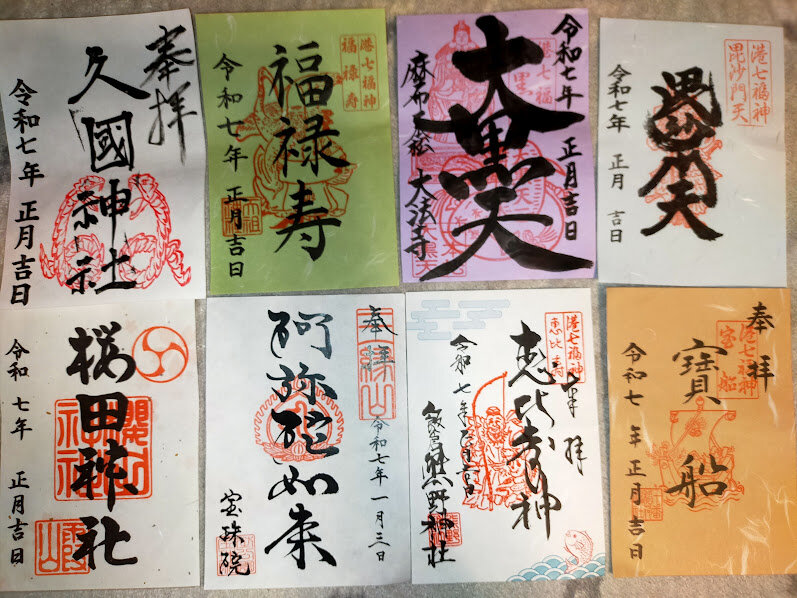 奉拝
久國神社
令和七年 正月吉日
港七福神
福禄寿
福禄寿
令和七年 正月吉日
令和七年 正月吉日
大黒天
麻布一本松 大法寺
港七福神
毘沙門天
毘沙門天
令和七年 正月 吉日
桜田神社
令和 七年 正月吉日
奉拝
阿弥陀如来
令和七年一月三日
宝珠院
港七福神
恵比寿
奉拝
恵比寿神
飯倉熊野神社
奉拝
港七福神
宝船
寶船
令和七年 正月吉日